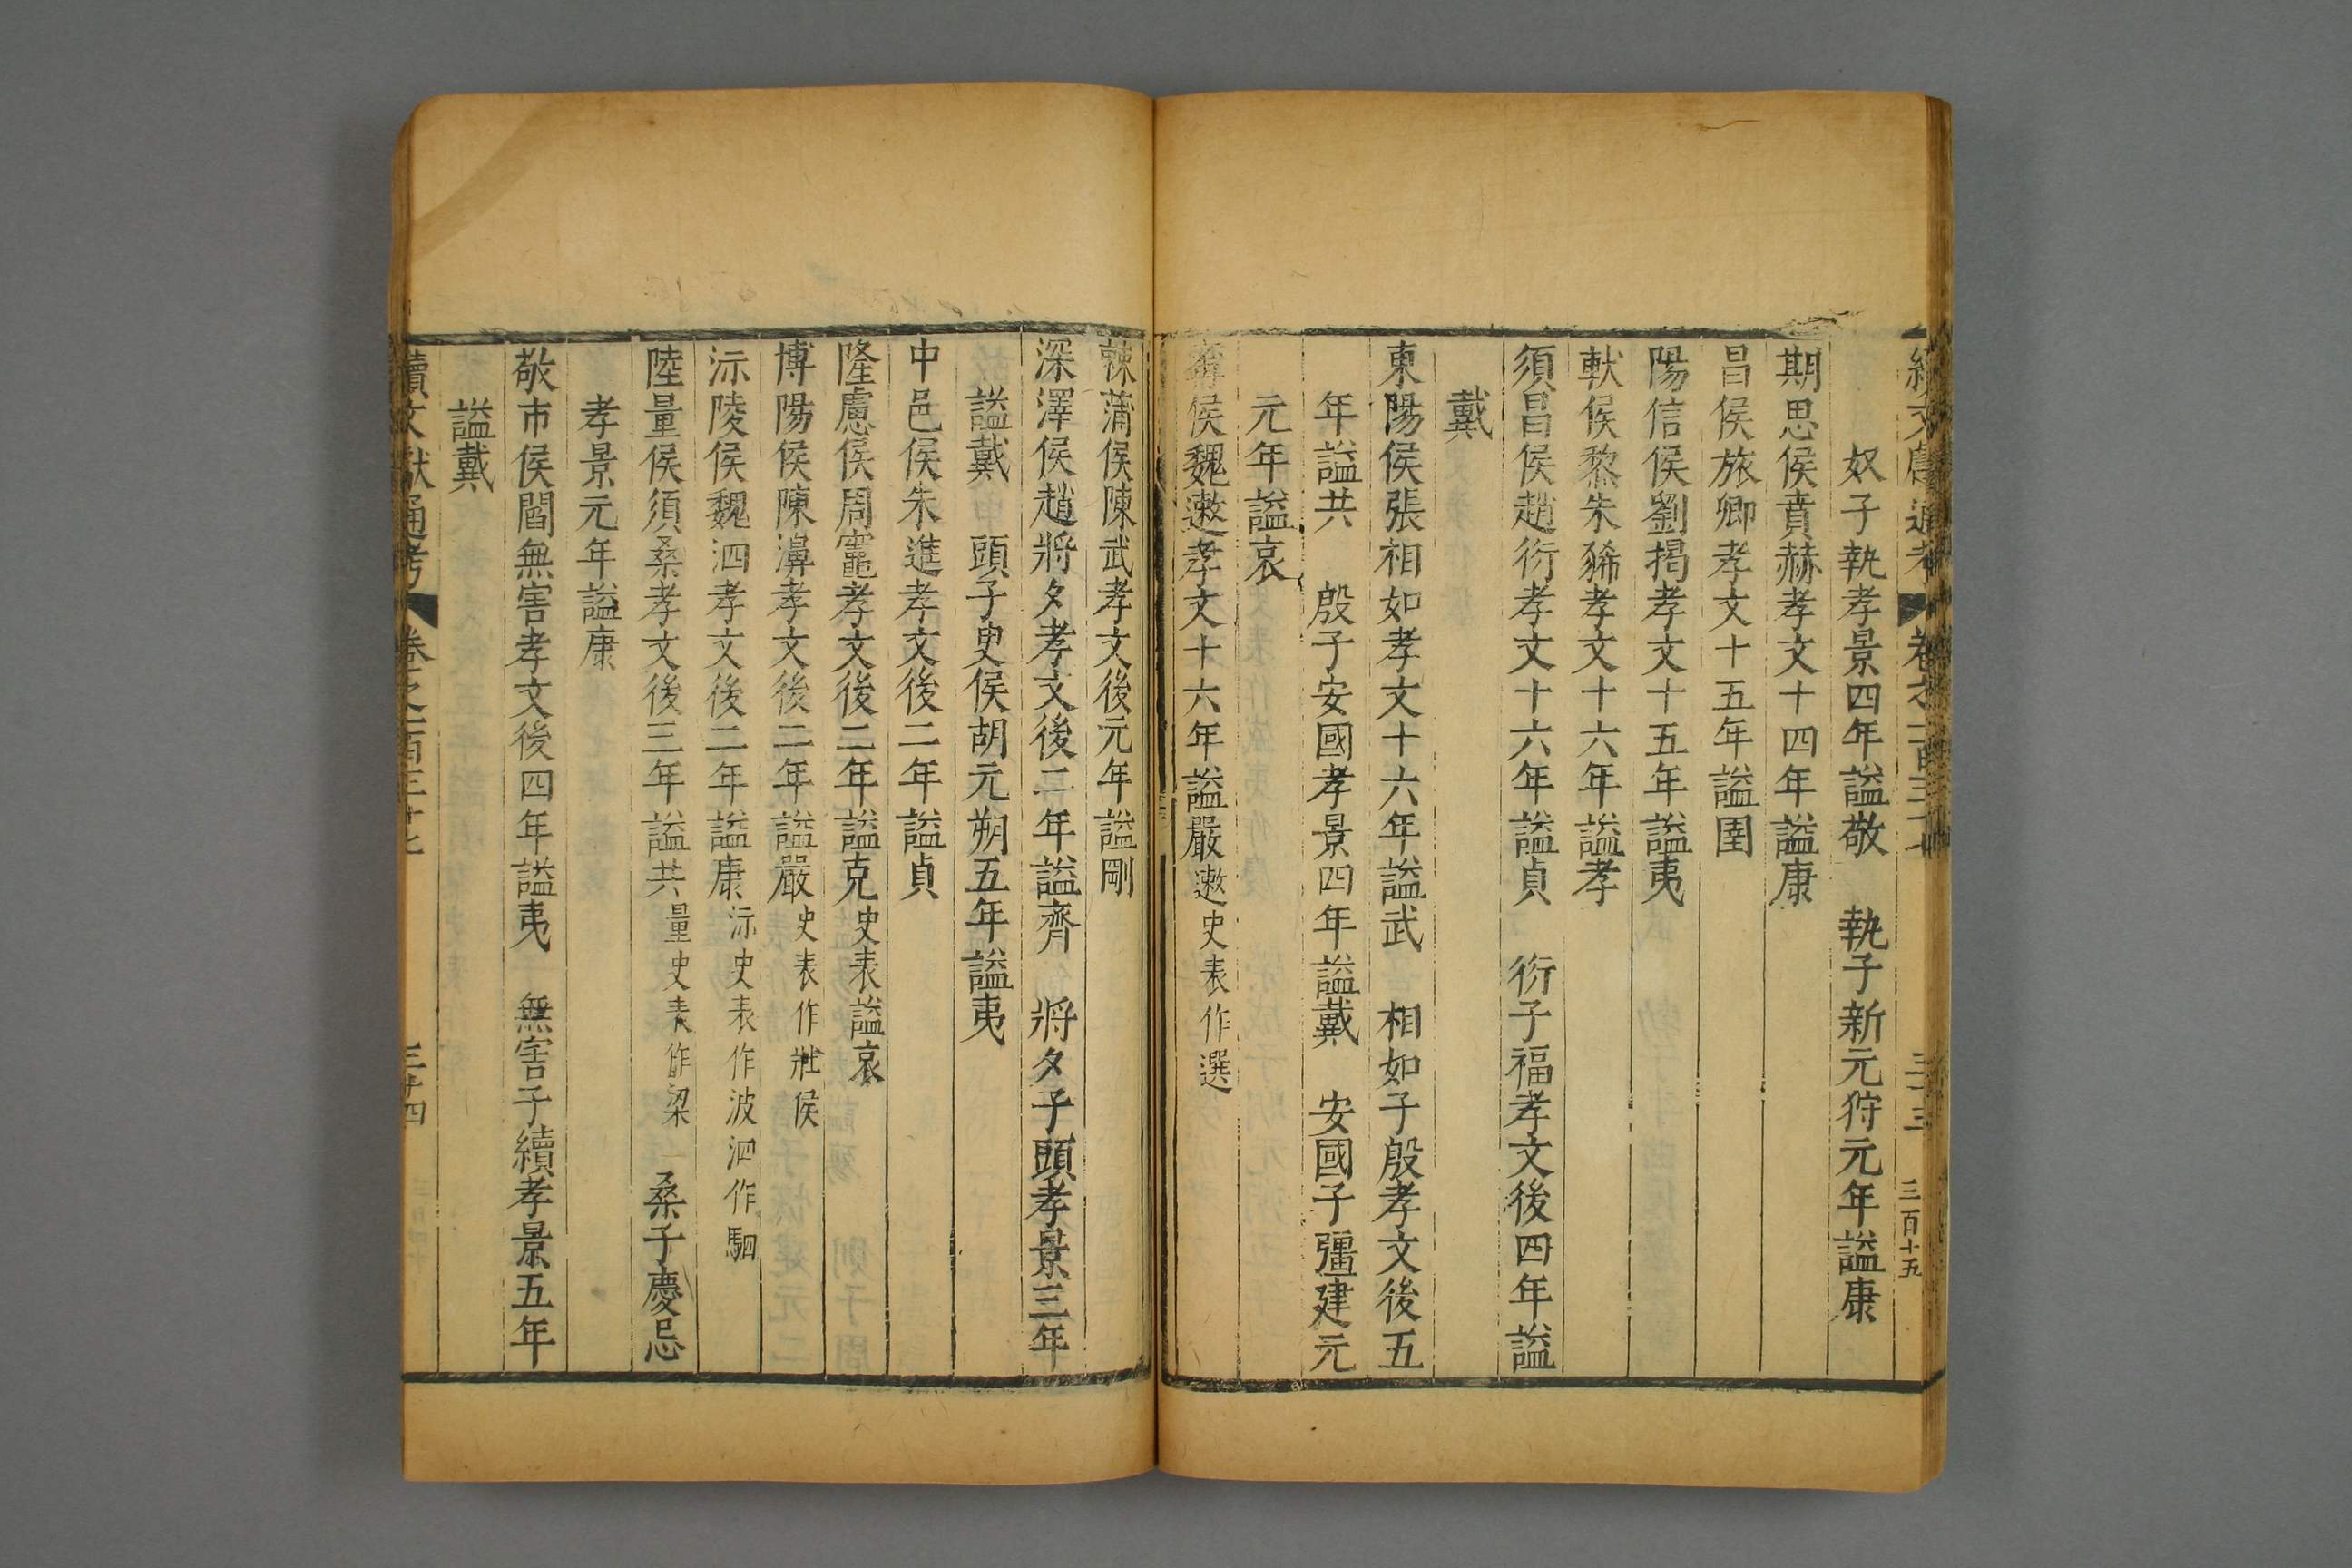 奴子執孝景四年謚敬　執子新元狩元年謚康
期思侯賁赫孝文十四年謚康
昌侯旅卿孝文十五年謚圉
陽信侯劉揭孝文十五年謚夷
軑侯黎朱豨孝文十六年謚孝
須昌侯趙衍孝文十六年謚貞　衍子福孝文後四年謚
戴
東陽侯張相如孝文十六年謚武　相如子殷孝文後五
年謚共　殷子安國孝景四年謚戴　安國子彊建元
元年謚哀
侯魏遬孝文十六年謚嚴遬史表作選
棘蒲侯陳武孝文後元年謚剛
深澤侯趙將夕孝文後二年謚齊　將夕子頭孝景三年
謚戴　頭子㕜侯胡元朔五年謚夷
中邑侯朱進孝文後二年謚貞
隆慮侯周竈孝文後二年謚克史表謚哀
博陽侯陳濞孝文後二年謚嚴史表作壯侯
沶陵侯魏泗孝文後二年謚康沶史表作波泗作駟
陸量侯須桑孝文後三年謚共量史表作梁　桑子慶忌
孝景元年謚康
敬市侯閻無害孝文後四年謚夷　無害子續孝景五年
謚戴
續文獻通考　卷之一百三十七　三十四